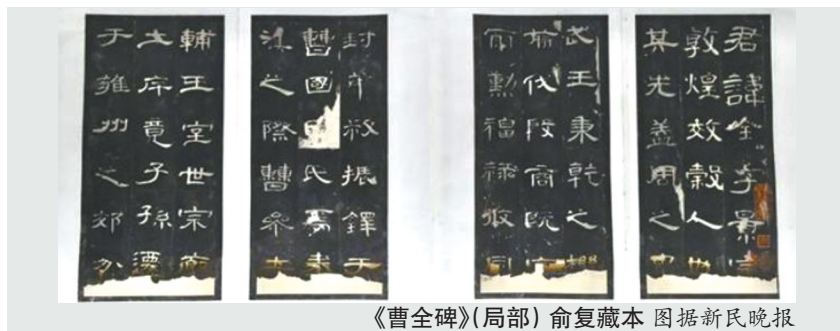 君諱全字景完
敦煌效穀人也
其先蓋周之胄
武王秉乾之機
翦伐殷商既定
爾勳福祿攸同
封弟叔振鐸于
曹國因氏焉秦
漢之際曹參夾
輔王室世宗廓
土斥竟子孫遷
于雍州之郊分
《曹全碑》(局部) 俞复藏本 图据新民晚报